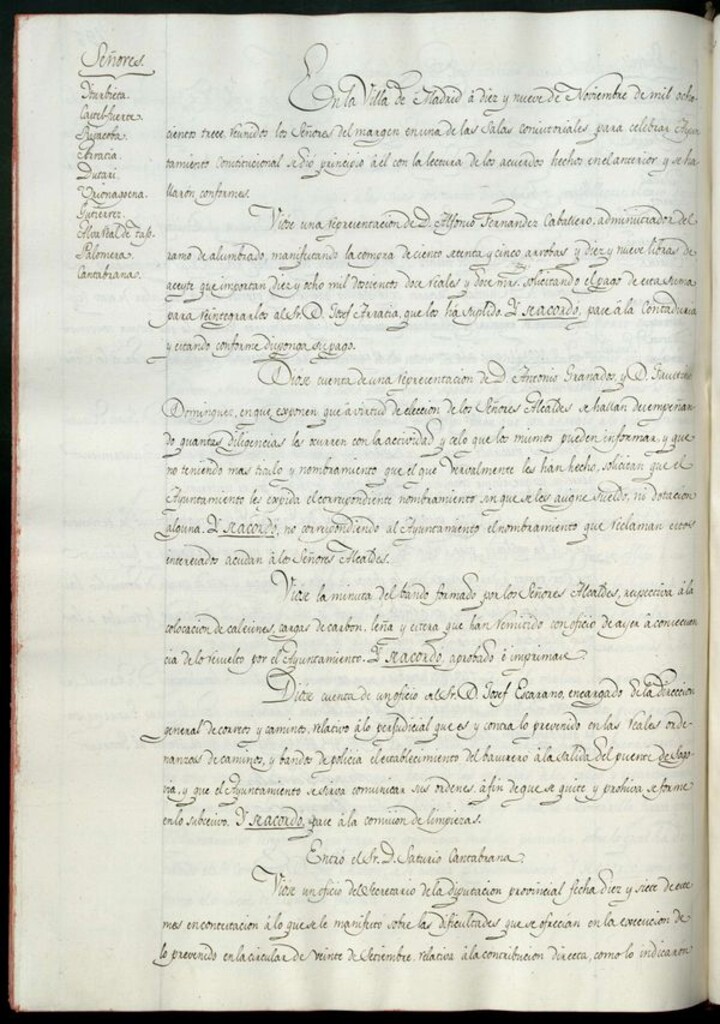 Señores.
Yturbieta.
Castel-fuerte.
Arratia.
Dutari.
Urionagoena.
Gutierrez.
Palomera.
Cantabrana.
En la Villa de Madrid á diez y nueve de Noviembre de mil ocho
cientos trece, reunidos los Señores del margen en una de las Salas consistoriales para celebrar Ayun
tamiento Constitucional se dió principio á él con la lectura de los acuerdos hechos en el anterior, y se ha
llaron conformes.
Viose una representacion de D. Alfonso Fernandez Caballero, administrador del
ramo de alumbrado, manifestando la compra de ciento setenta y cinco arrobas y diez y nueve libras de
aceyte que importan diez y ocho mil doscientos doce reales y doce mrs. solicitando el pago de esta suma
para reintegrarlos al Sr. D. Josef Arratia, que los há suplido. Y se acordó, pase á la Contaduria
y estando conforme disponga su pago.
Diose cuenta de una representacion de D. Antonio Granados, y D. Francisco
Dominguez, en que exponen que á virtud de eleccion de los Señores Alcaldes se hallan desempeñan
do quantas diligencias les ocurren con la actividad y celo que los mismos pueden informar, y que
no teniendo mas titulo y nombramiento que el que Vervalmente les han hecho, solicitan que el
Ayuntamiento les expida el correspondiente nombramiento sin que se les asigne sueldo, ni dotacion
alguna. Y se acordó, no correspondiendo al Ayuntamiento el nombramiento que reclaman estos
interesados acudan á los Señores Alcaldes.
Viose la minuta del bando formado por los Señores Alcaldes, respectiva á la
colocacion de calesines, cargas de carbon, leña y etcera que han remitido con oficio de ayer á consecuen
cia de lo resuelto por el Ayuntamiento. Y se acordó, aprobado é imprimase.
Diose cuenta de un oficio al Sr. D. Josef Escarano, encargado de la direccion
general de correos y caminos, relativo á lo perjudicial que es y contra lo prevenido en las reales orde
nanzas de caminos, y bandos de policia el establecimiento del basurero á la salida del puente de Sego
via, y que el Ayuntamiento se sirva comunicar sus ordenes á fin de que se quite y prohiva se forme
en lo subcesivo. Y se acordó, pase á la comision de limpiezas.
Entró el Sr. D. Saturio Cantabrana.
Viose un oficio del Secretario de la diputacion provincial fecha diez y siete de este
mes en contestacion á lo que se le manifestó sobre las dificultades que se ofrecian en la execucion de
lo prevenido en la circular de veinte de Setiembre, relativa á la contribucion directa, como lo indicaron